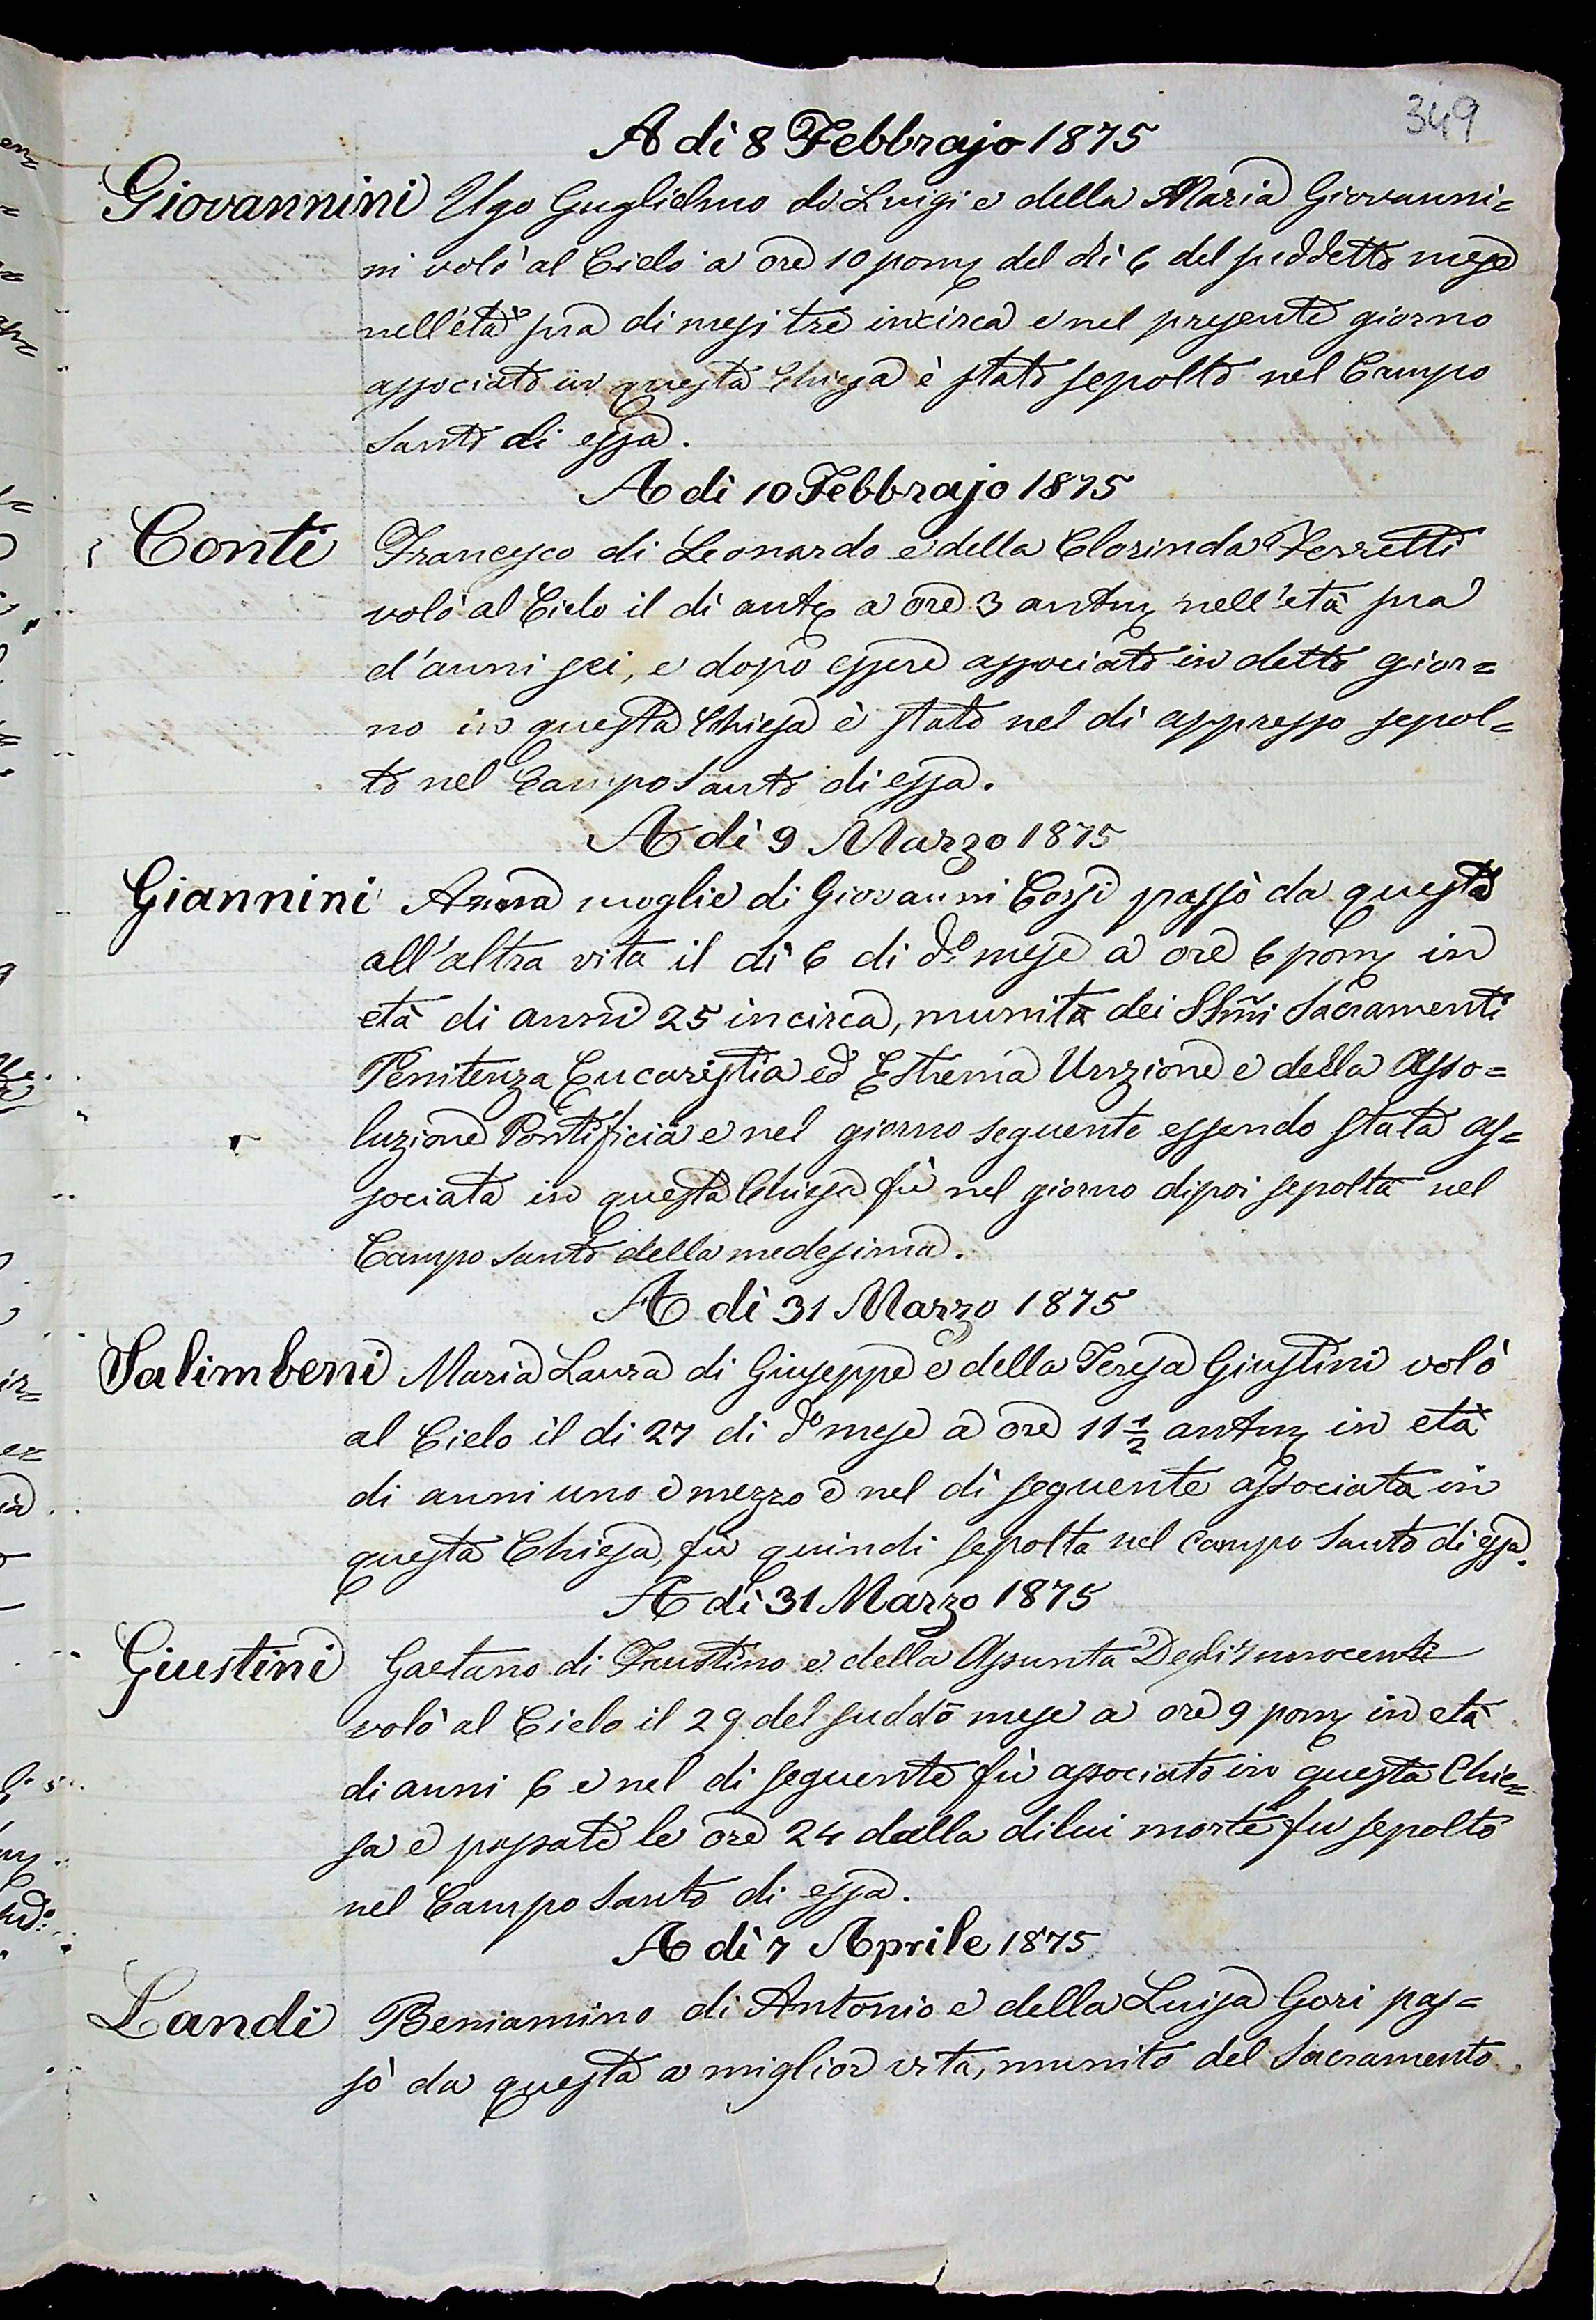 349
A dì 8 Febbrajo 1875
Giovannini Ugo Guglielmo di Luigi e della Maria Giovanni=
ni volò al Cielo a ore 10 pom del dì 6 del suddetto mese
nell'età sua di mesi tre incirca e nel presente giorno
associato in questa Chiesa è stato sepolto nel Campo
Santo di essa.
A dì 10 Febbrajo 1875
Conti Francesco di Leonardo e della Clorinda Ferretti
volò al Cielo il dì ante a ore 3 antm nell'età sua
d'anni sei, e dopo essere associato in detto gior=
no in questa Chiesa è stato nel dì appresso sepol=
to nel Campo Santo di essa.
A dì 9 Marzo 1875
Giannini Anna moglie di Giovanni Corsi passò da questa
all'altra vita il dì 6 di do mese a ore 6 pom in
età di anni 25 incirca, munita dei SSmi Sacramenti
Penitenza Eucaristia ed Estrema Unzione e della Asso=
luzione Pontificia e nel giorno seguente essendo stata as=
sociata in questa Chiesa fù nel giorno dipoi sepolta nel
Campo santo della medesima.
A dì 31 Marzo 1875
Salimbeni Maria Laura di Giuseppe e della Teresa Giustini volò
al Cielo il di 27 di do mese a ore 11 1/2 antm in età
di anni uno e mezzo e nel dì seguente associata in
questa Chiesa, fù quindi sepolta nel campo Santo di essa.
A dì 31 Marzo 1875
Giustini Gaetano di Faustino e della Assunta Degl'Innocenti
volò al Cielo il 29 del suddo mese a ore 9 pom in età
di anni 6 e nel di seguente fù associato in questa Chie=
sa e passate le ore 24 dalla di lui morte fu sepolto
nel Campo Santo di essa.
A dì 7 Aprile 1875
Landi Beniamino di Antonio e della Luisa Gori pas=
sò da questa a miglior vita, munito del Sacramento